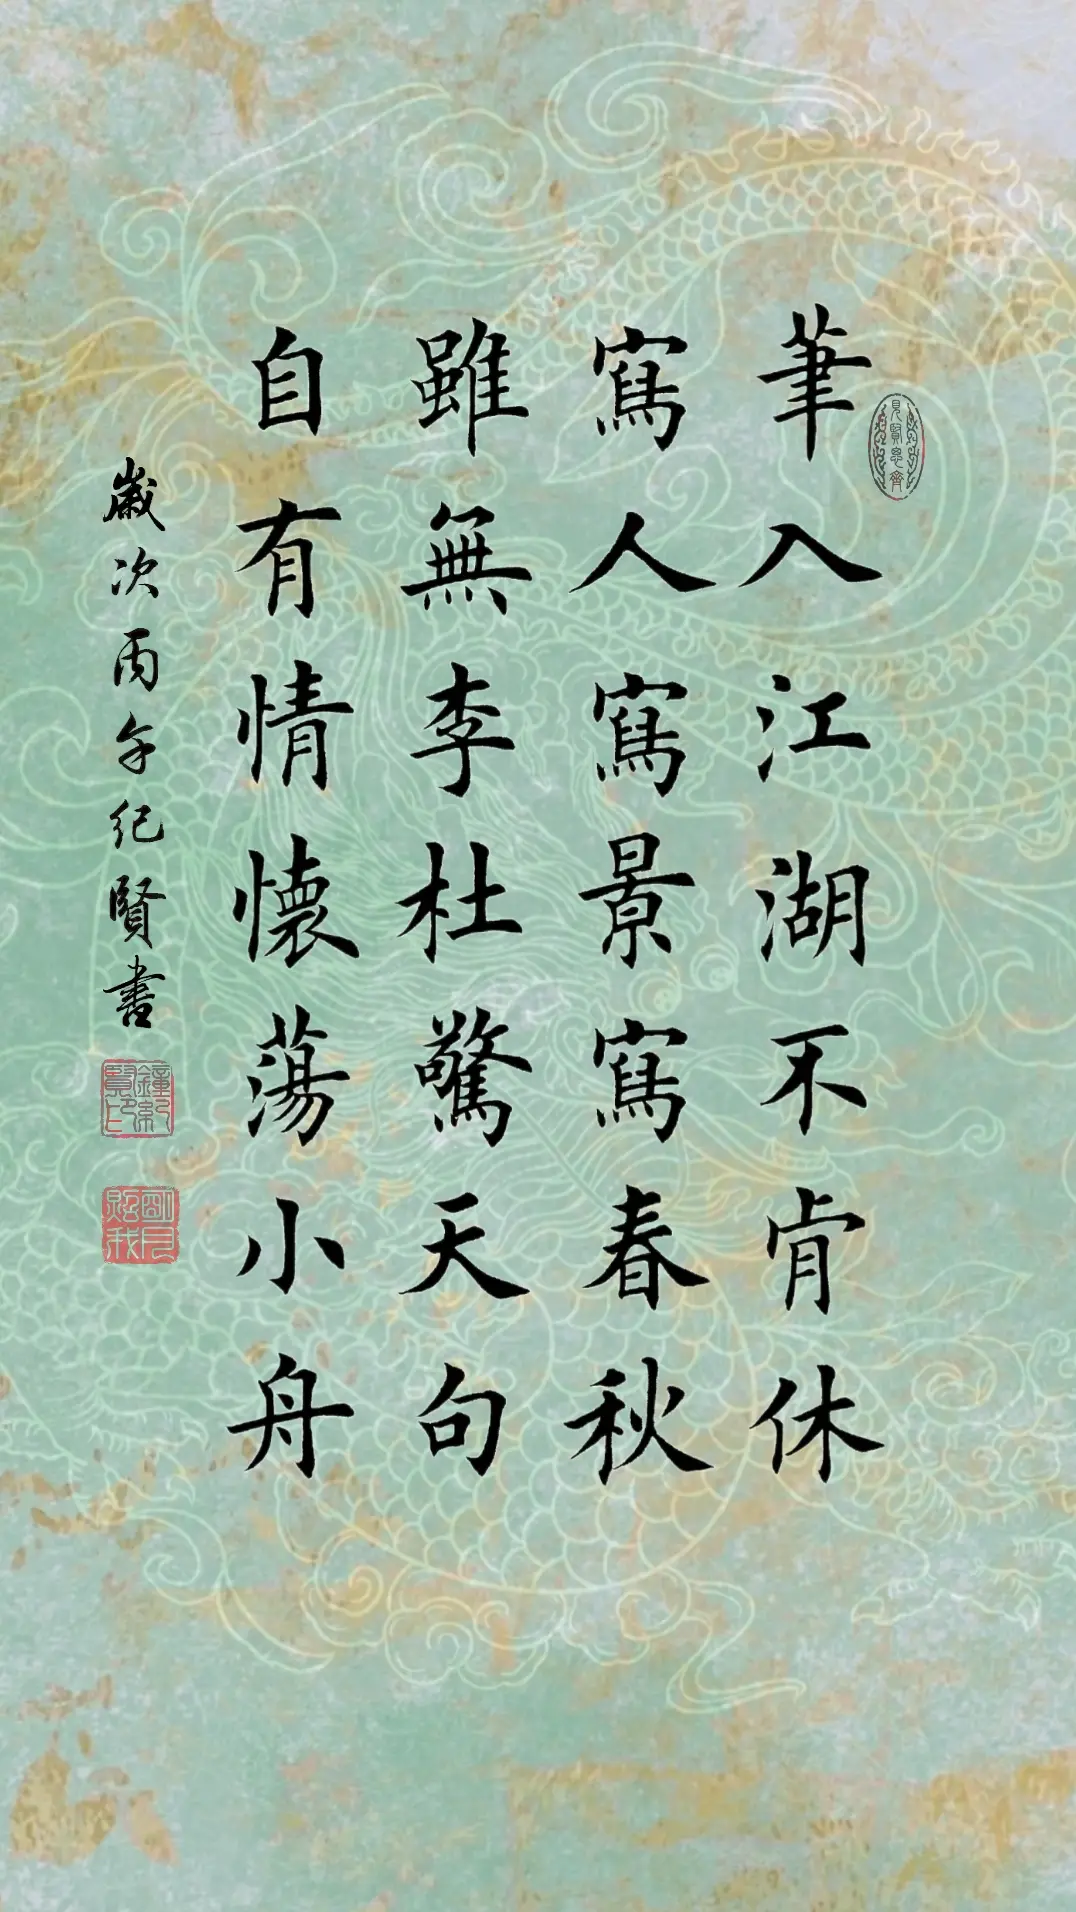 筆入江湖不肯休
寫人寫景寫春秋
雖無李杜驚天句
自有情懷蕩小舟
歲次丙午紀賢書
見賢思齊
鐘紀賢印